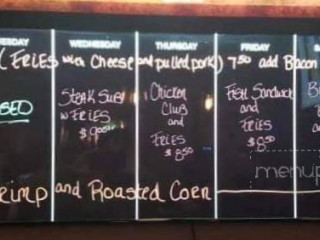 ESDAY WEDNESDAY THURSDAY FRIDAY S
( FRIES with Cheese and pulled pork) 7.50 add Bacon
SED
Steak Sub
w/ FRIES
$9.00
Chicken
Club
and
FRIES
$8.50
Fish Sandwich
and
FRIES
$8.50
menup
rimp and Roasted Corn